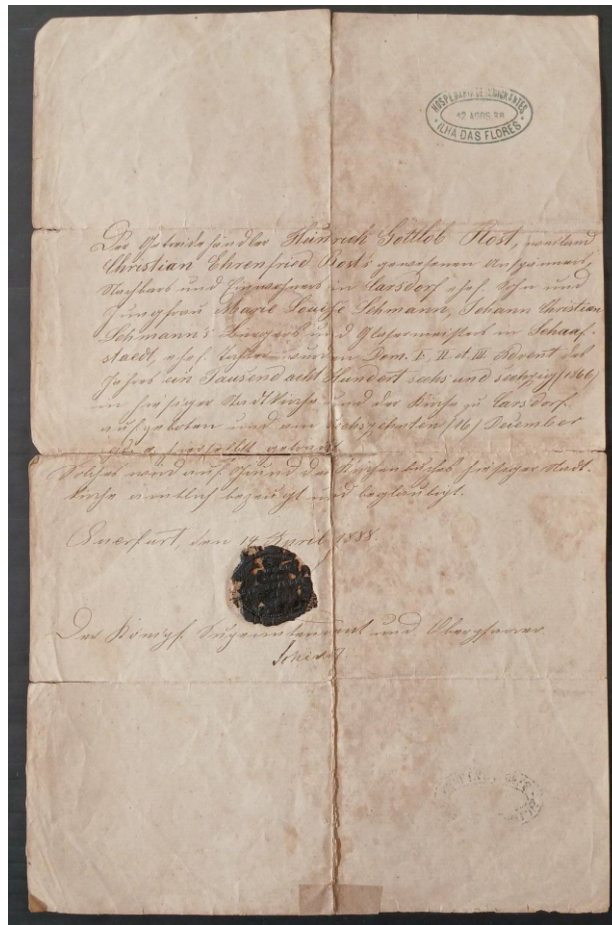 HOSPEDARIA DE IMMIGRANTES
AGOS. 88
ILHA DAS FLORES
Der Getreidehändler Heinrich Gottlob Rost, weiland
Christian Ehrenfried Rost's gewesenen Anspänners,
Nachbars und Einwohners in Carsdorf ehel. Sohn und
Jungfrau Marie Louise Lehmann, Johann Christian
Lehmann's Bürgers und Glasermeisters in Schaaf-
staedt, ehel. Tochter wurden Dom. I, II et III Advent des
Jahres ein Tausend acht Hundert sechs und sechzig /1866/
in hiesiger Stadtkirche und der Kirche zu Carsdorf
aufgeboten und am sechszehnten /16/ Dezember
hierselbst getraut.
Solches wird auf Grund des Kirchenbuches hiesiger Stadt-
kirche amtlich bezeugt und beglaubigt.
Querfurt, den 14 April 1888.
Der Königl. Superintendent und Oberpfarrer